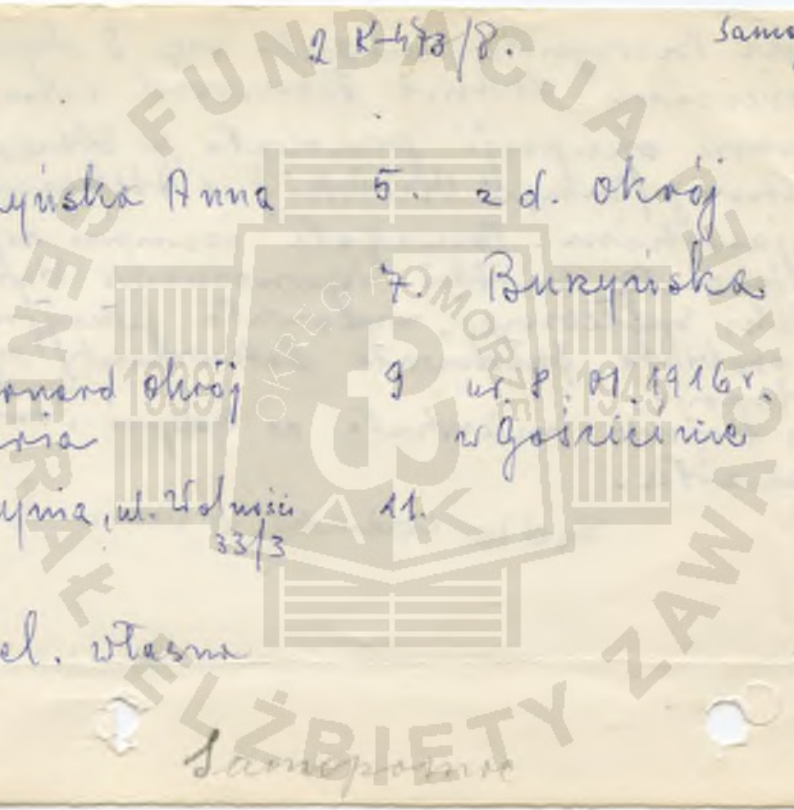 2 K-473/8.
Samo
yńska Anna 5. z d. Okrój
7. Burzyńska
ernard Okrój 9 ur. 8.01.1916 r.
aria w Gościcinie
ynia, ul. Wolności 11.
33/3
el. własna
Samopomoc
FUNDACJA GENERAŁ ELŻBIETY ZAWACKIEJ
OKRĘG POMORZE
1939 1945
AK